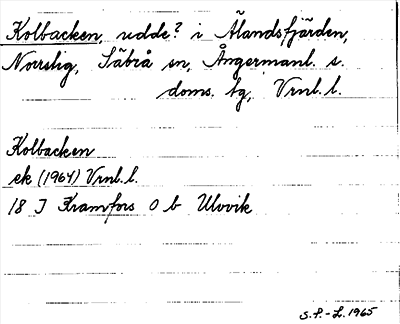 Kolbacken, udde? i Älandsfjärden,
Norrstig, Säbrå sn, Ångermanl. s.
doms. tg, Vrnl. l.
Kolbacken
ek (1964) Vrnl. l.
18 J Kramfors 0 b Ulvvik
S.P.-L. 1965